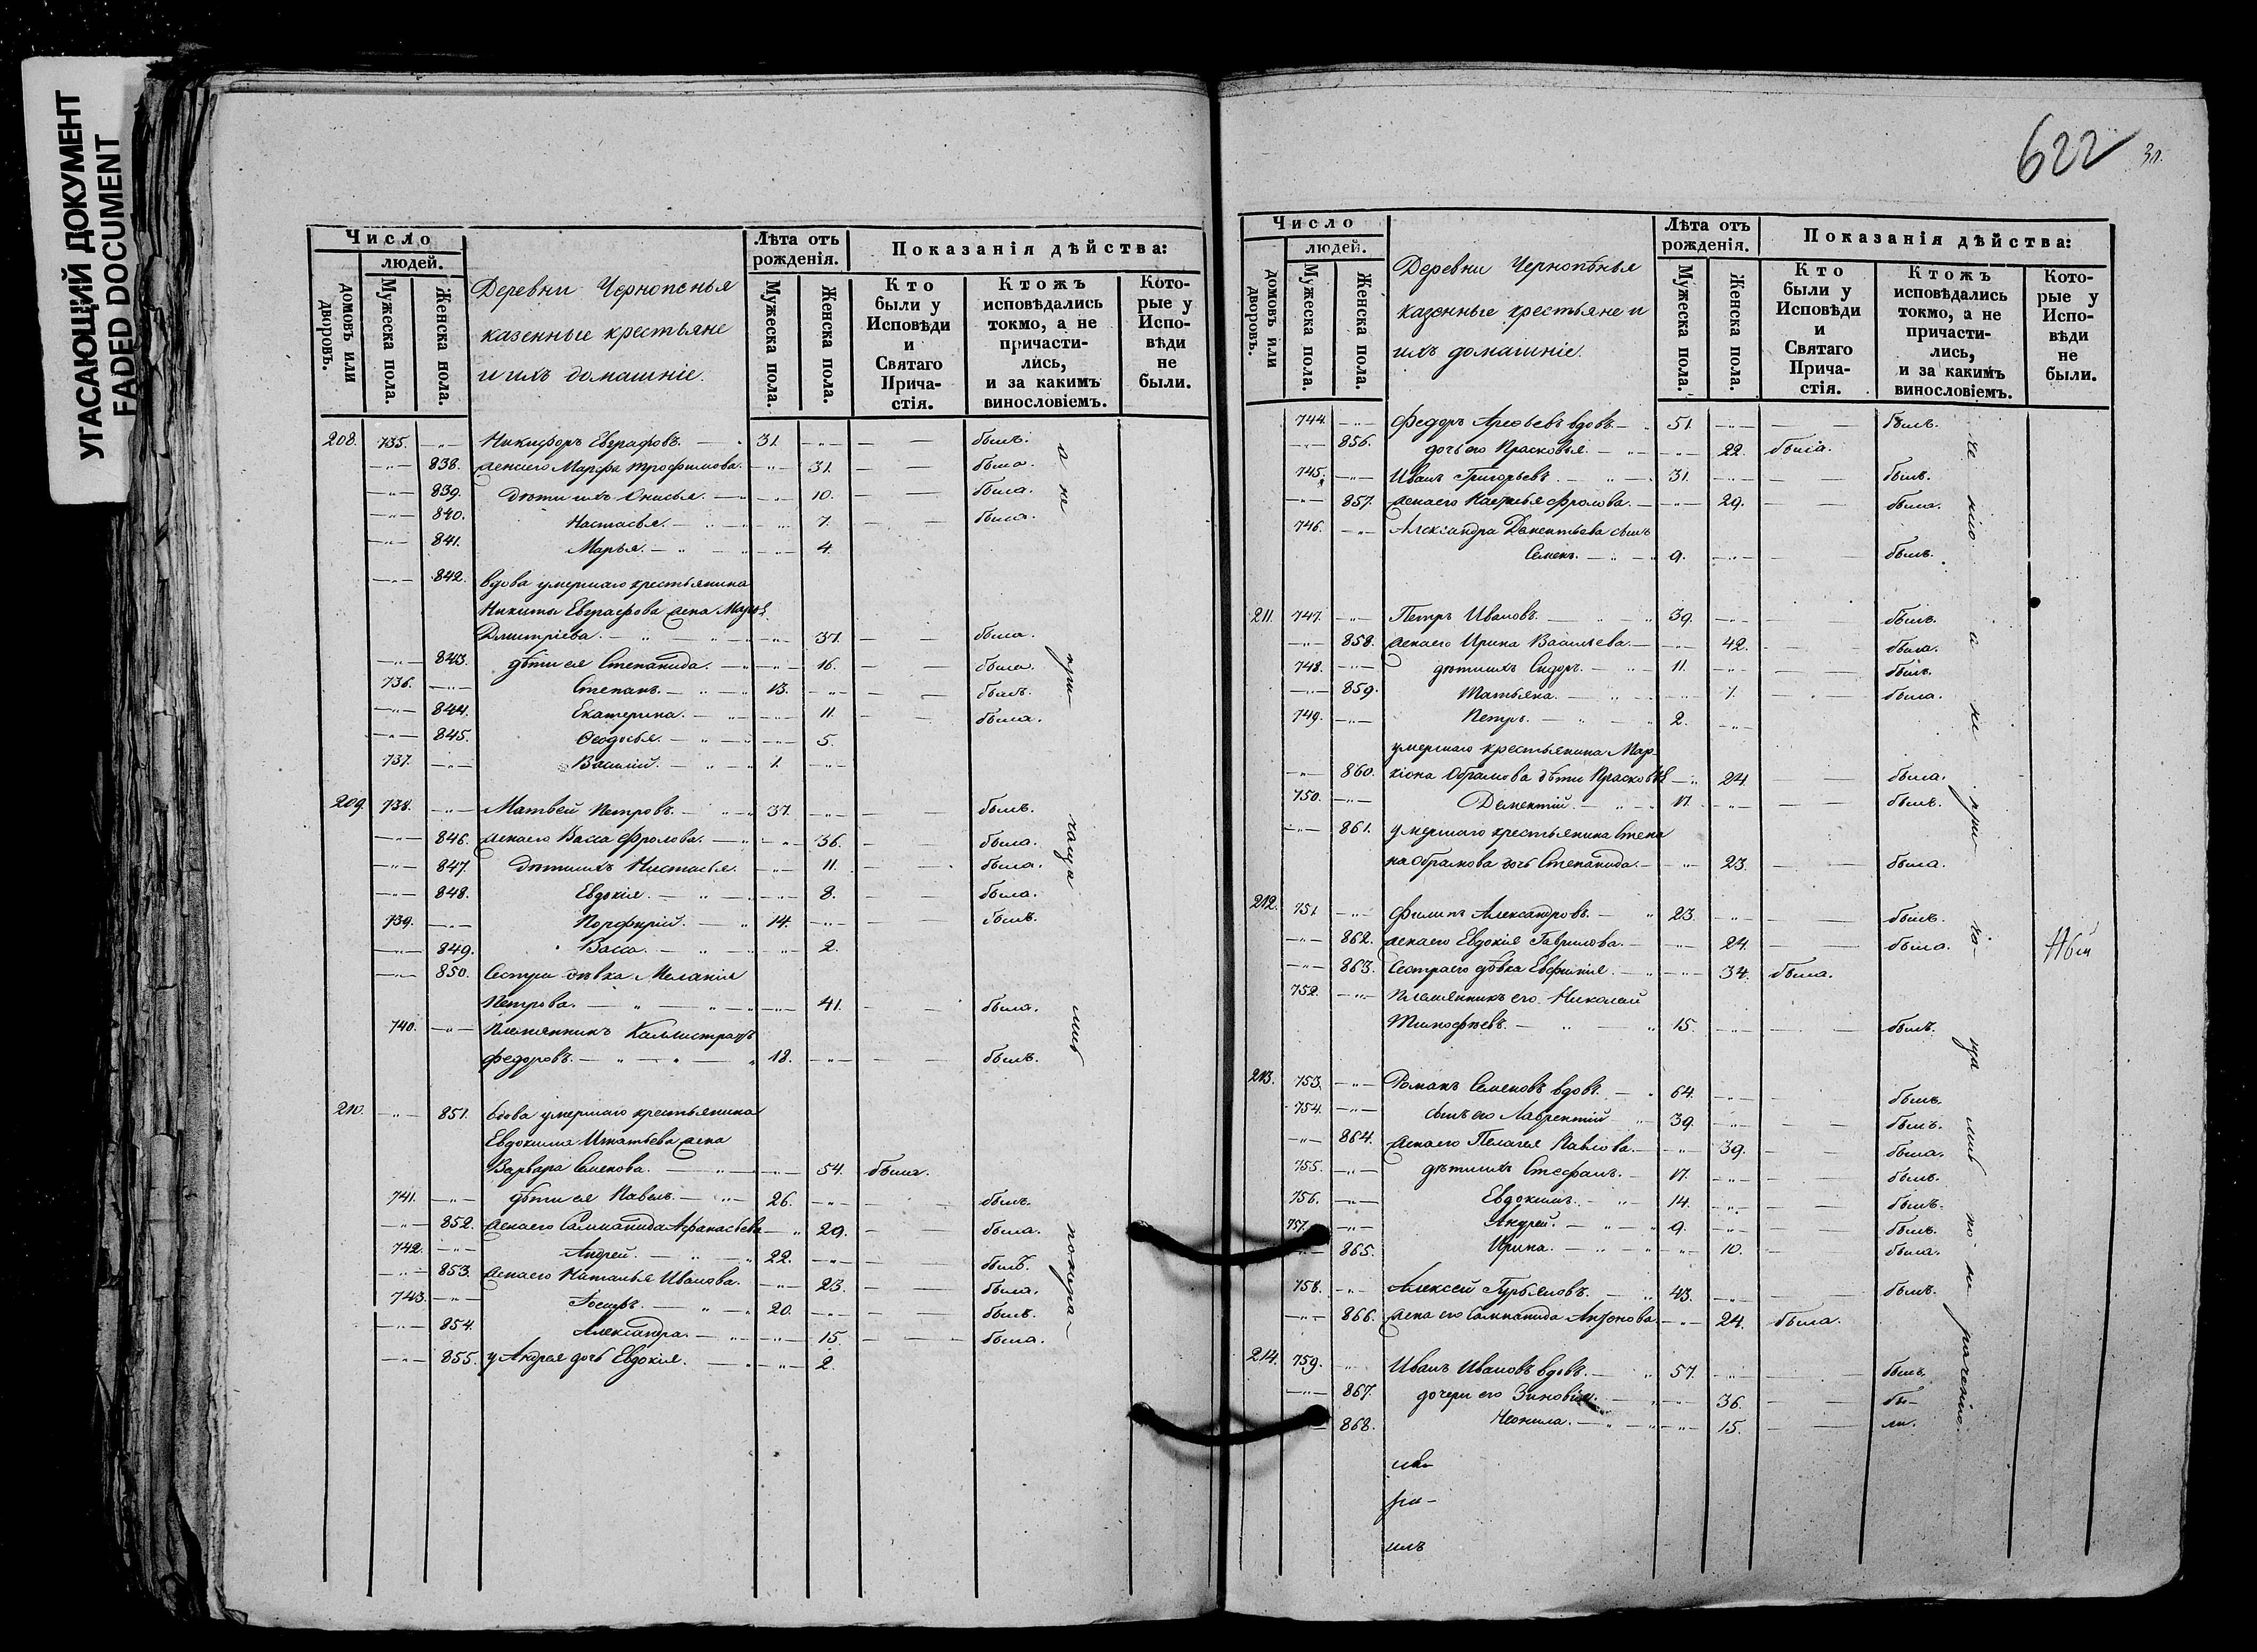 УГАСАЮЩИЙ ДОКУМЕНТ
FADED DOCUMENT
Число
людей.
домовъ или дворовъ.
Мужеска пола.
Женска пола.
Деревни Чернопенья
казенные крестьяне
и ихъ домашніе.
Лѣта отъ рожденія.
Мужеска пола.
Женска пола.
Показанія дѣйства:
Кто были у Исповѣди и Святаго Причастія.
Ктожъ исповѣдались токмо, а не причастились, и за какимъ винословіемъ.
Которые у Исповѣди не были.
208. 735. Никифоръ Евграфовъ. 31. былъ.
838. жена его Марфа Трофимова. 31. была.
839. дѣти ихъ Онисья. 10. была.
840. Настасья. 7. была.
841. Марья. 4.
842. вдова умершаго крестьянина
Никиты Евграфова жена Марѳа
Дмитріева. 37. была.
843. дѣти ея Степанида. 16. была.
736. Степанъ. 13. былъ.
844. Екатерина. 11. была.
845. Ѳеодосья. 5.
737. Василій. 1.
209. 738. Матвей Петровъ. 37. былъ.
846. жена его Васса Фролова. 36. была.
847. дѣти ихъ Настасья. 11. была.
848. Евдокія. 8. была.
739. Порфирій. 14. былъ.
849. Васса. 2.
850. Сестра дѣвка Меланія
Петрова. 41. была.
740. Племянникъ Каллистратъ
Федоровъ. 18. былъ.
210. 851. вдова умершаго крестьянина
Евдокима Игнатьева жена
Варвара Семенова. 54. была.
741. дѣти ея Павелъ. 26. былъ.
852. жена его Саломанида Афанасьева 29. была.
742. Андрей. 22. былъ.
853. жена его Наталья Иванова. 23. была.
743. Іосифъ. 20. былъ.
854. Александра. 15. была.
855. у Андрея дочь Евдокія. 2.
а не при- чаща лись
622
Число
людей.
домовъ или дворовъ.
Мужеска пола.
Женска пола.
Деревни Чернопѣнья
казенные крестьяне и
ихъ домашніе.
Лѣта отъ рожденія.
Мужеска пола.
Женска пола.
Показанія дѣйства:
Кто были у Исповѣди и Святаго Причастія.
Ктожъ исповѣдались токмо, а не причастились, и за какимъ винословіемъ.
Которые у Исповѣди не были.
744. Федоръ Арефьевъ вдовъ. 51. былъ.
856. дочь его Прасковья. 22. была.
745. Иванъ Григорьевъ. 31. былъ.
857. жена его Наталья Фролова. 29. была.
746. Александра Дементьева сынъ
Семенъ. 9. былъ.
211. 747. Петръ Ивановъ. 39. былъ.
858. жена его Ирина Васильева. 42. была.
748. дѣти ихъ Сидоръ. 11. былъ.
859. Татьяна. 7. была.
749. Петръ. 2.
умершаго крестьянина Мар-
860. кіона Абрамова дѣти Прасковья 24. была.
750. Дементій. 17. былъ.
861. умершаго крестьянина Степа
на Абрамова дочь Степанида. 23. была.
212. 751. Филипъ Александровъ. 23. былъ.
862. жена его Евдокія Гаврилова. 24. была.
863. Сестра его дѣвка Евфимія. 34. была.
752. Племянникъ его Николай
Тимофѣевъ. 15. былъ.
213. 753. Романъ Семеновъ вдовъ. 64. былъ.
754. сынъ его Лаврентій 39. былъ.
864. жена его Пелагея Павлова. 39. была.
755. дѣти ихъ Стефанъ. 17. былъ.
756. Евдокимъ. 14. былъ.
757. Андрей. 9. былъ.
865. Ирина. 10. была.
758. Алексей Гурьяновъ. 43. былъ.
866. жена его Саломанида Антонова. 24. была.
214. 759. Иванъ Ивановъ вдовъ. 57. былъ.
867. дочери его Зиновія. 36. бы-
868. Неонила. 15. ли.
а не при- ча- ща лись по не раченію.